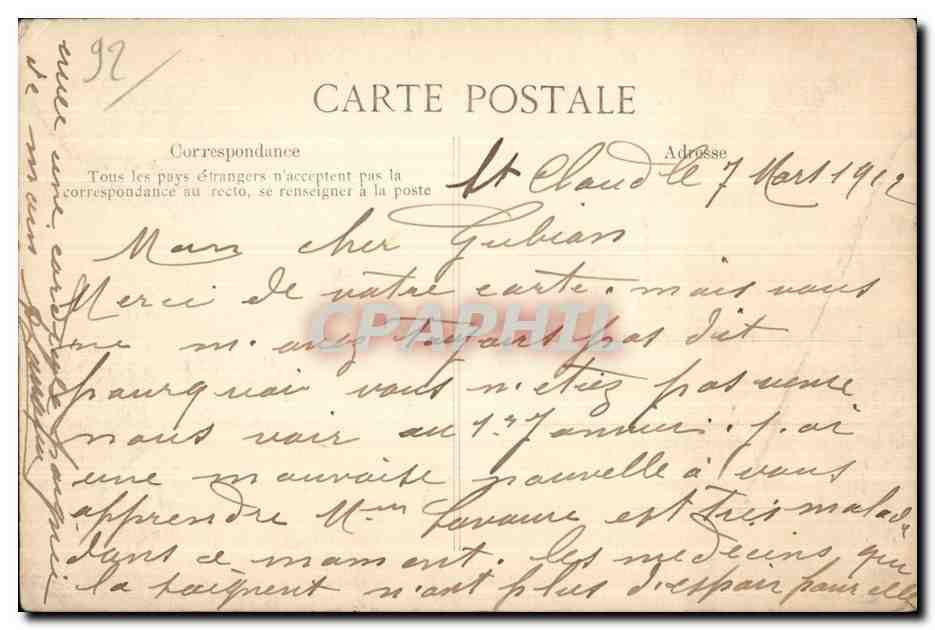 92
CARTE POSTALE
Correspondance
Adresse
Tous les pays étrangers n'acceptent pas la
correspondance au recto, se renseigner à la poste
St Cloud le 7 Mars 1912
Mon cher Gubian
Merci de votre carte. mais vous
ne m'avez toujours pas dit
pourquoi vous n'etiez pas venu
nous voir au 1er Janvier. j'ai
une mauvaise nouvelle à vous
apprendre Mme Lavaure est très malade
dans ce moment. les medecins qui
la soignent n'ont plus d'espoir pour elle
avec une cordiale poignée
de main
CPAPHIL